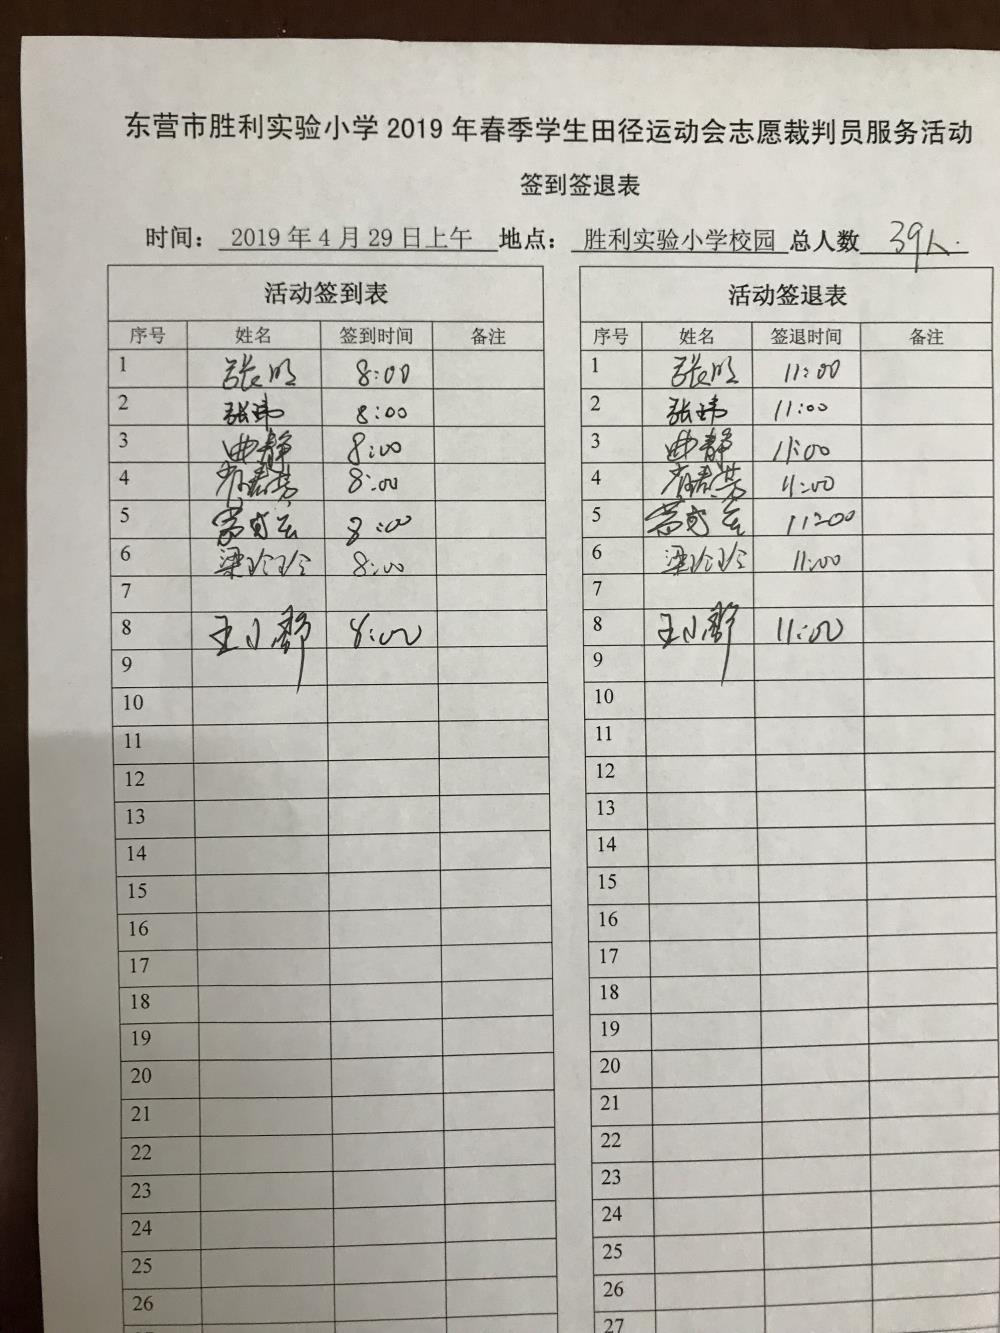 东营市胜利实验小学 2019 年春季学生田径运动会志愿裁判员服务活动
签到签退表
时间： 2019 年 4 月 29 日上午 地点： 胜利实验小学校园 总人数 39人.
活动签到表 活动签退表
序号 姓名 签到时间 备注 序号 姓名 签退时间 备注
1 张明 8:00 1 张明 11:00
2 张玮 8:00 2 张玮 11:00
3 曲静 8:00 3 曲静 11:00
4 8:00 4 11:00
5 8:00 5 11:00
6 梁玲玲 8:00 6 梁玲玲 11:00
7 7
8 王小静 8:00 8 王小静 11:00
9 9
10 10
11 11
12 12
13 13
14 14
15 15
16 16
17 17
18 18
19 19
20 20
21 21
22 22
23 23
24 24
25 25
26 26
27